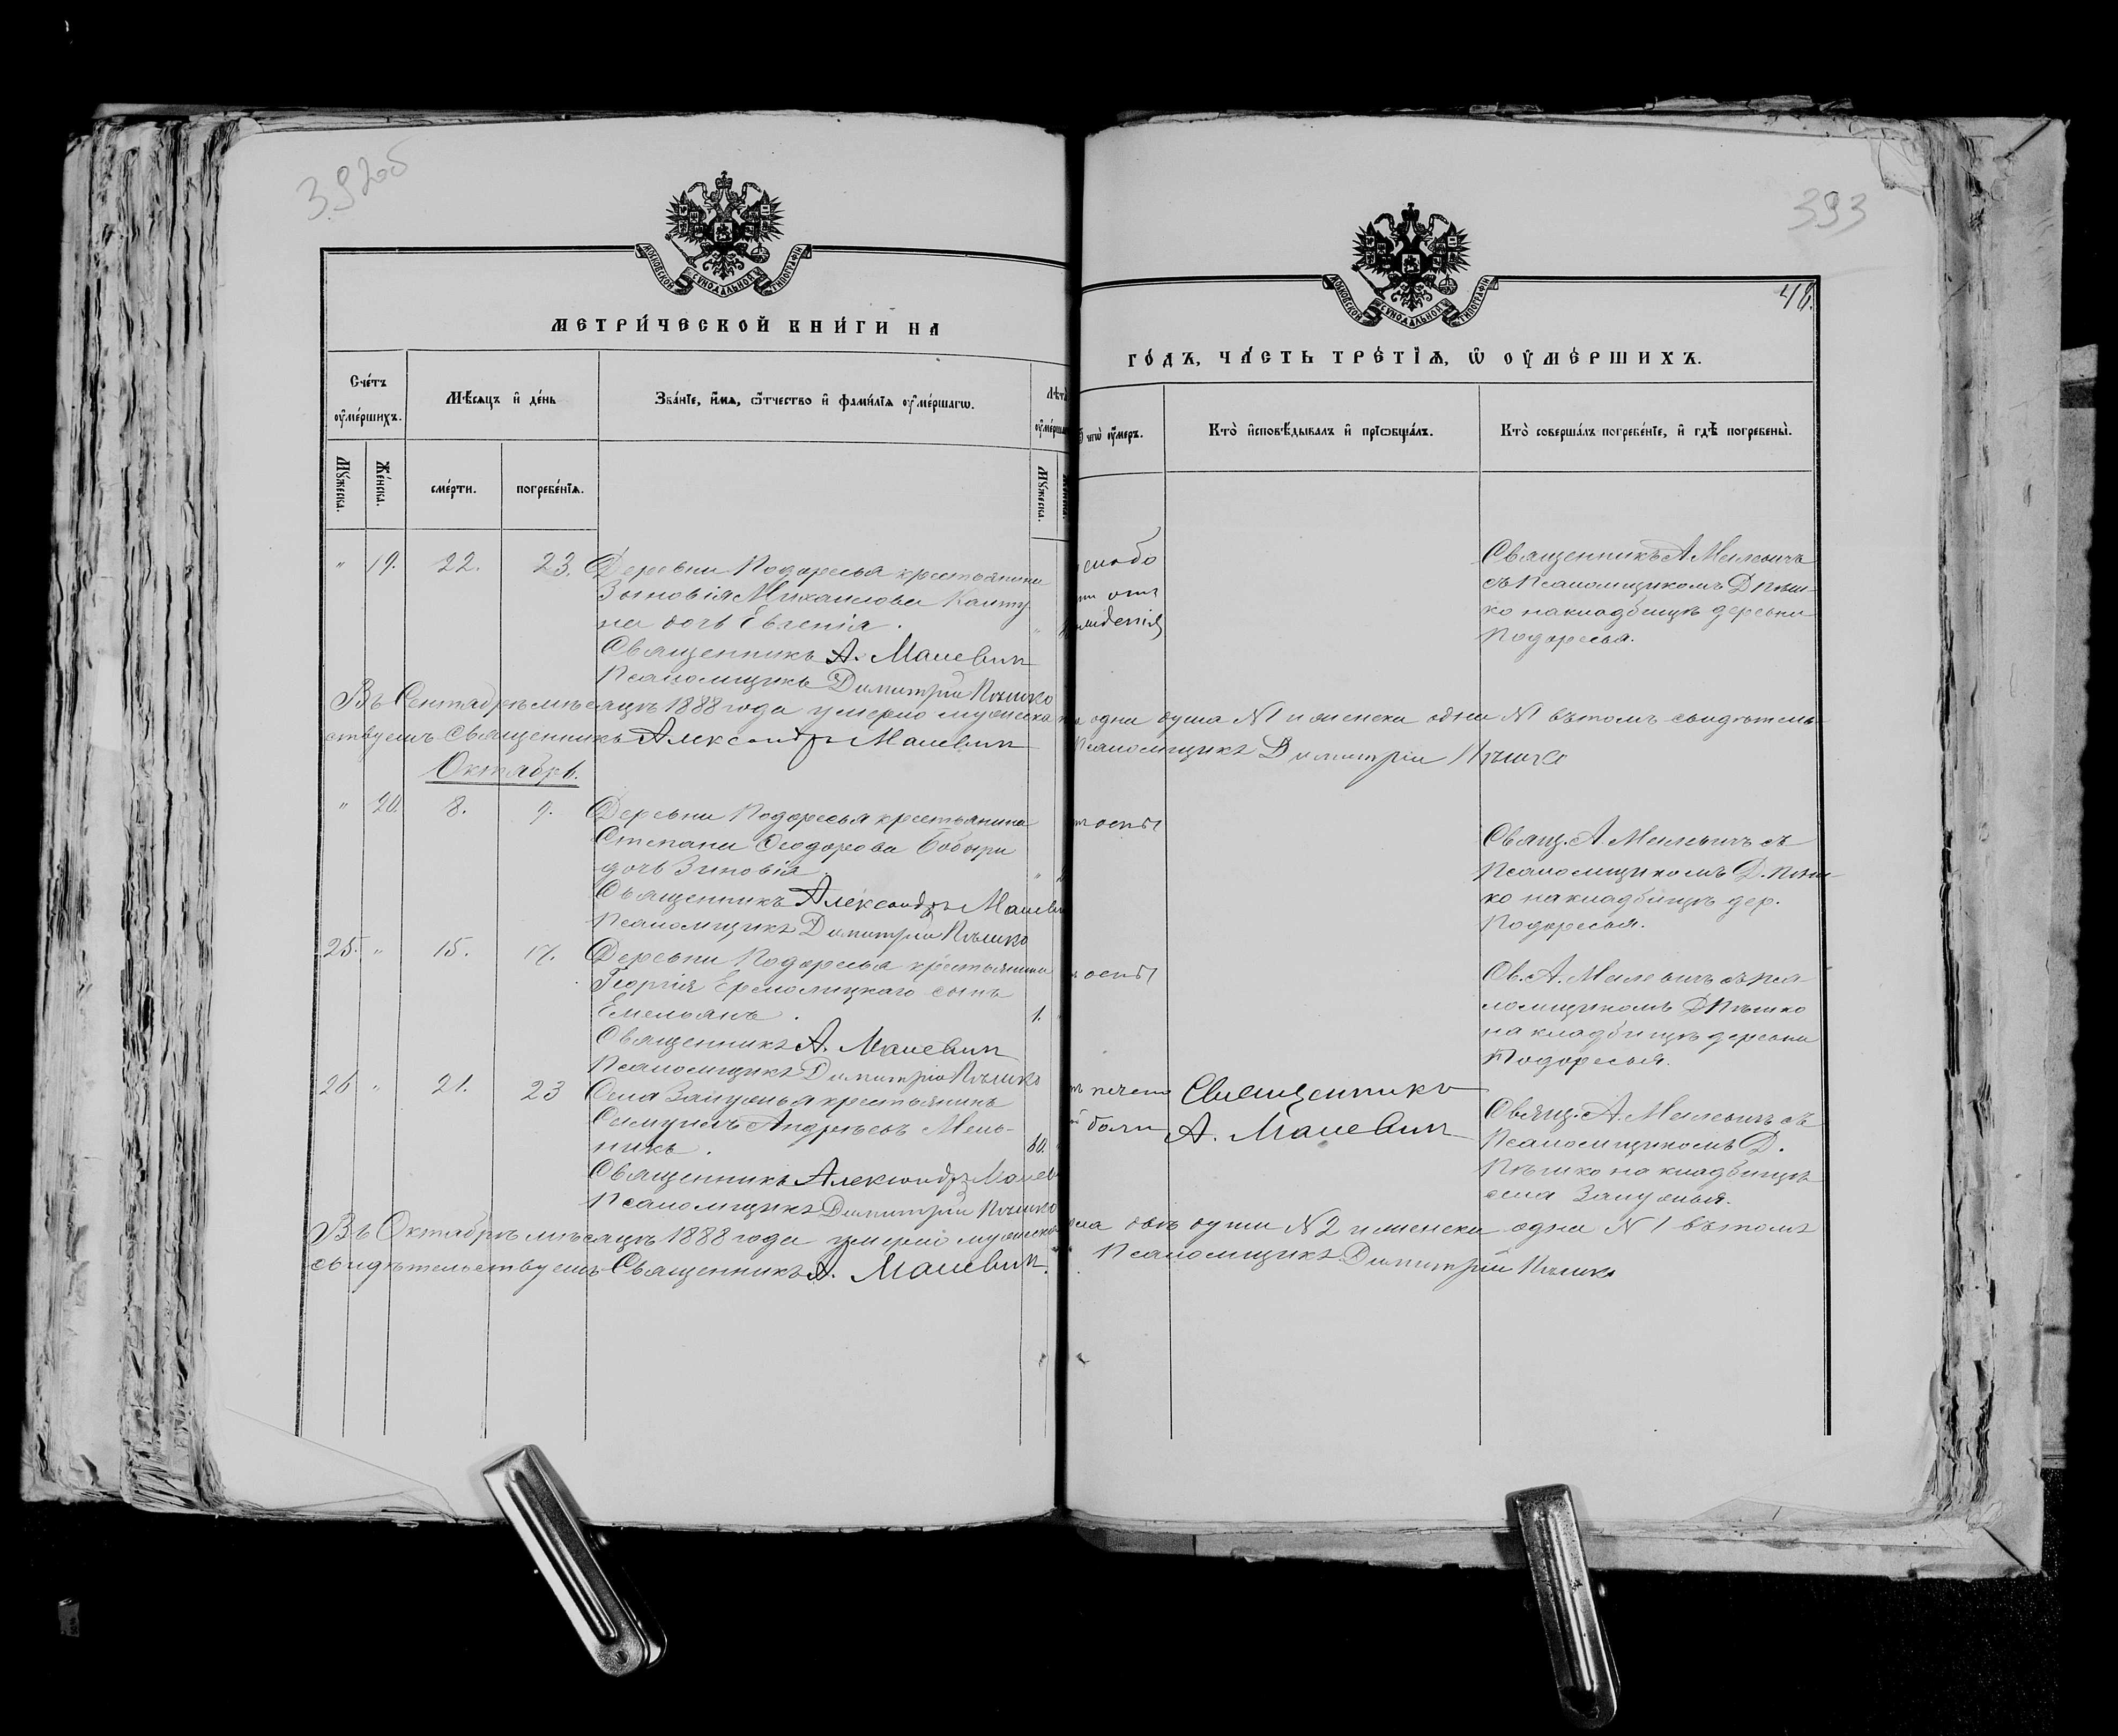 392об
393
МОСКОВСКОЙ СѴНОДАЛЬНОЙ ТИПОГРАФІИ
МОСКОВСКОЙ СѴНОДАЛЬНОЙ ТИПОГРАФІИ
48.
МЕТРИ́ЧЕСКОЙ КНИ́ГИ НА
ГО́ДЪ, ЧА́СТЬ ТРЕ́ТІѦ, Ѿ ОУ҆МЕ́РШИХЪ.
Сче́тъ оу҆ме́ршихъ.
Мѣ́сѧцъ и҆ де́нь
Зва́нїе, и҆́мѧ, ѻ҆́тчество и҆ фами́лїѧ оу҆ме́ршагѡ.
Лѣт
оу҆ме́рша
чегѡ̀ оу҆́меръ.
Кто̀ и҆сповѣ́дывалъ и҆ прїѡбща́лъ.
Кто̀ соверша́лъ погребе́нїе, и҆ гдѣ̀ погребены̀.
Мꙋ́жеска.
Же́нска.
сме́рти.
погребе́нїѧ.
Мꙋ́жеска.
" 19. 22. 23. Деревни Подоресья крестьянина
Зиновія Михаилова
на дочь Евгенія.
Священникъ А. Малевич
Псаломщикъ Димитрій Пѣшко
слабо
Священникъ А Малевичъ
съ Псаломщикомъ Д Пѣш-
ко на кладбищѣ деревни
Подоресья.
Въ Сентябрѣ мѣсяцѣ 1888 года умерло мужеска одна душа №1 и женска одна №1 въ томъ свидѣтель-
ствуемъ Священникъ Александръ Малевич Псаломщикъ Димитрій Пѣшко
Октябрь.
" 20. 8. 9. Деревни Подоресья крестьянина
Степана Ѳеодорова Бобыри
дочь Зиновія
Священникъ Александръ Малев
Псаломщикъ Димитрій Пѣшко
оспы
Свящ. А. Малевичъ съ
Псаломщикомъ Д. Пѣш-
ко на кладбищѣ дер.
Подоресья.
25. " 15. 17. Деревни Подоресья крестьянина
Георгія Ермолицкаго сынъ
Емельянъ. 1.
Священникъ А. Малевич
Псаломщикъ Димитрій Пѣшко
оспы
Св. А. Малевичъ съ Пса-
ломщикомъ Д Пѣшко
на кладбищѣ деревни
Подоресья.
26 " 21. 23 Села Залужья крестьянинъ
Самуилъ Андреевъ Мель-
никъ. 80.
Священникъ Александръ Малев
Псаломщикъ Димитрій Пѣшко
боли
Священникъ
А. Малевич
Свящ. А. Малевичъ съ
Псаломщикомъ Д.
Пѣшко на кладбищѣ
села Залужья.
Въ Октябрѣ мѣсяцѣ 1888 года умерло мужеска двѣ души №2 и женска одна №1 въ томъ
свидѣтельствуемъ Священникъ А. Малевич. Псаломщикъ Димитрій Пѣшко